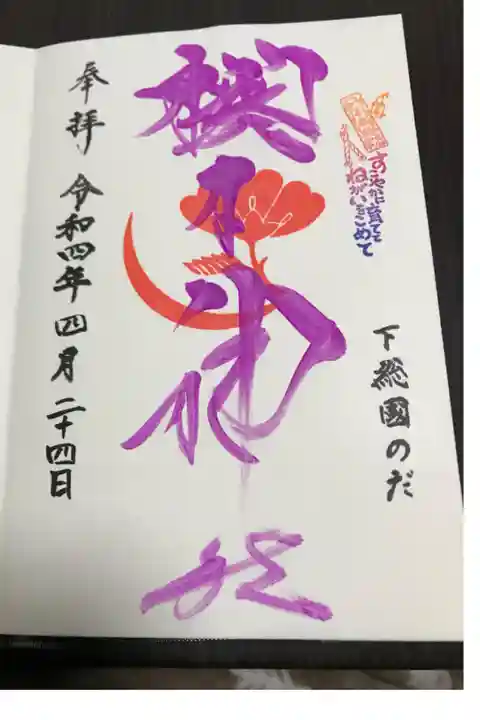 下総國のだ
すこやかに育てと
ねがいをこめて
櫻木神社
奉拝 令和四年四月二十四日